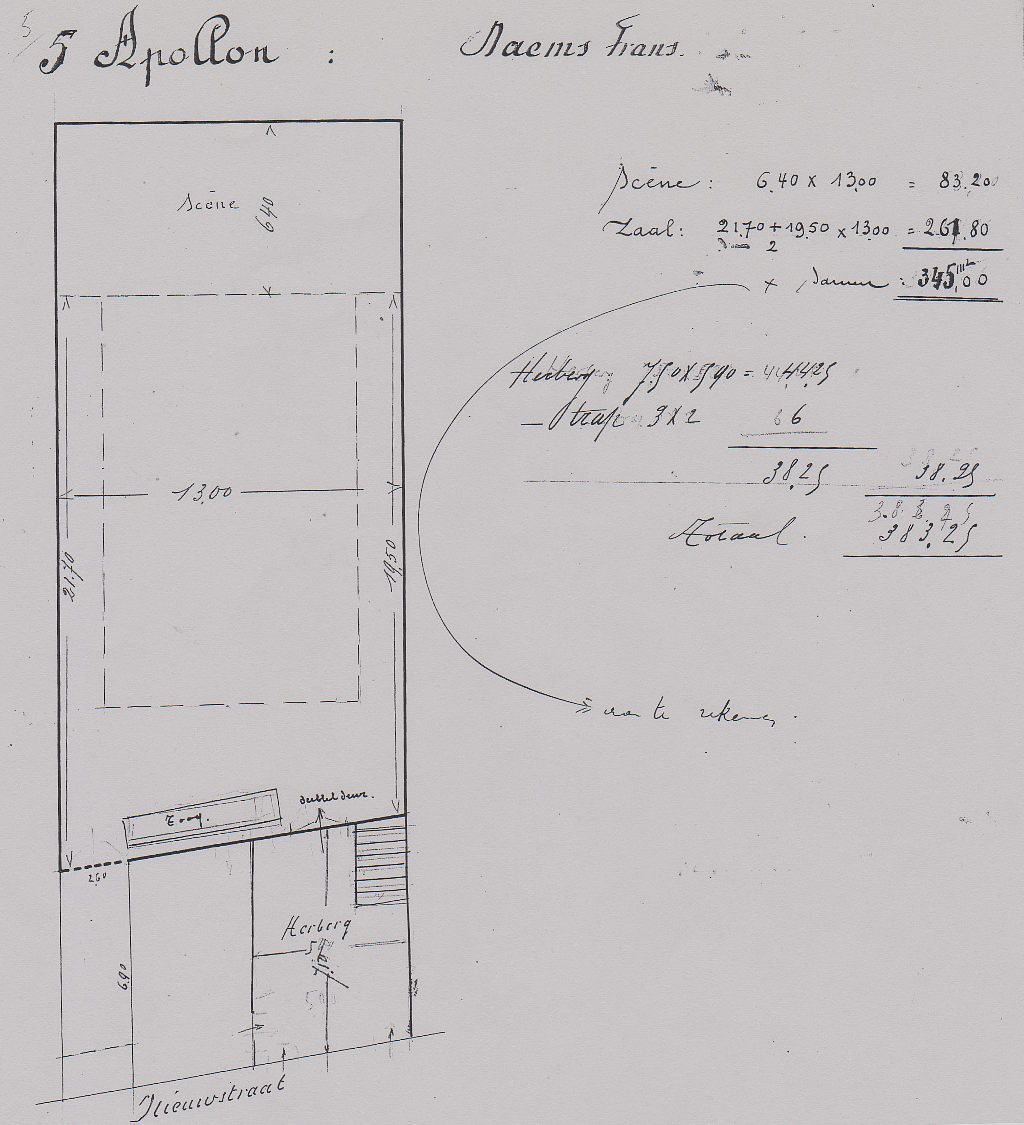 5
5 Apollon : Daems Frans.
Scène : 6.40 x 13.00 = 83.20
Zaal : 21.70 + 19.50 x 13.00 = 267.80
2
x Samen : 345,00 m²
Herberg 7.50 x 5.90 = 44.25
— Trap 3 x 2 6
38.25 38.25
383.25
Totaal. 383.25
Scène
6.40
13.00
21.70
19.50
Toog.
dubbel deur.
2.60
Herberg
6.90
te rekenen.
Nieuwstraat